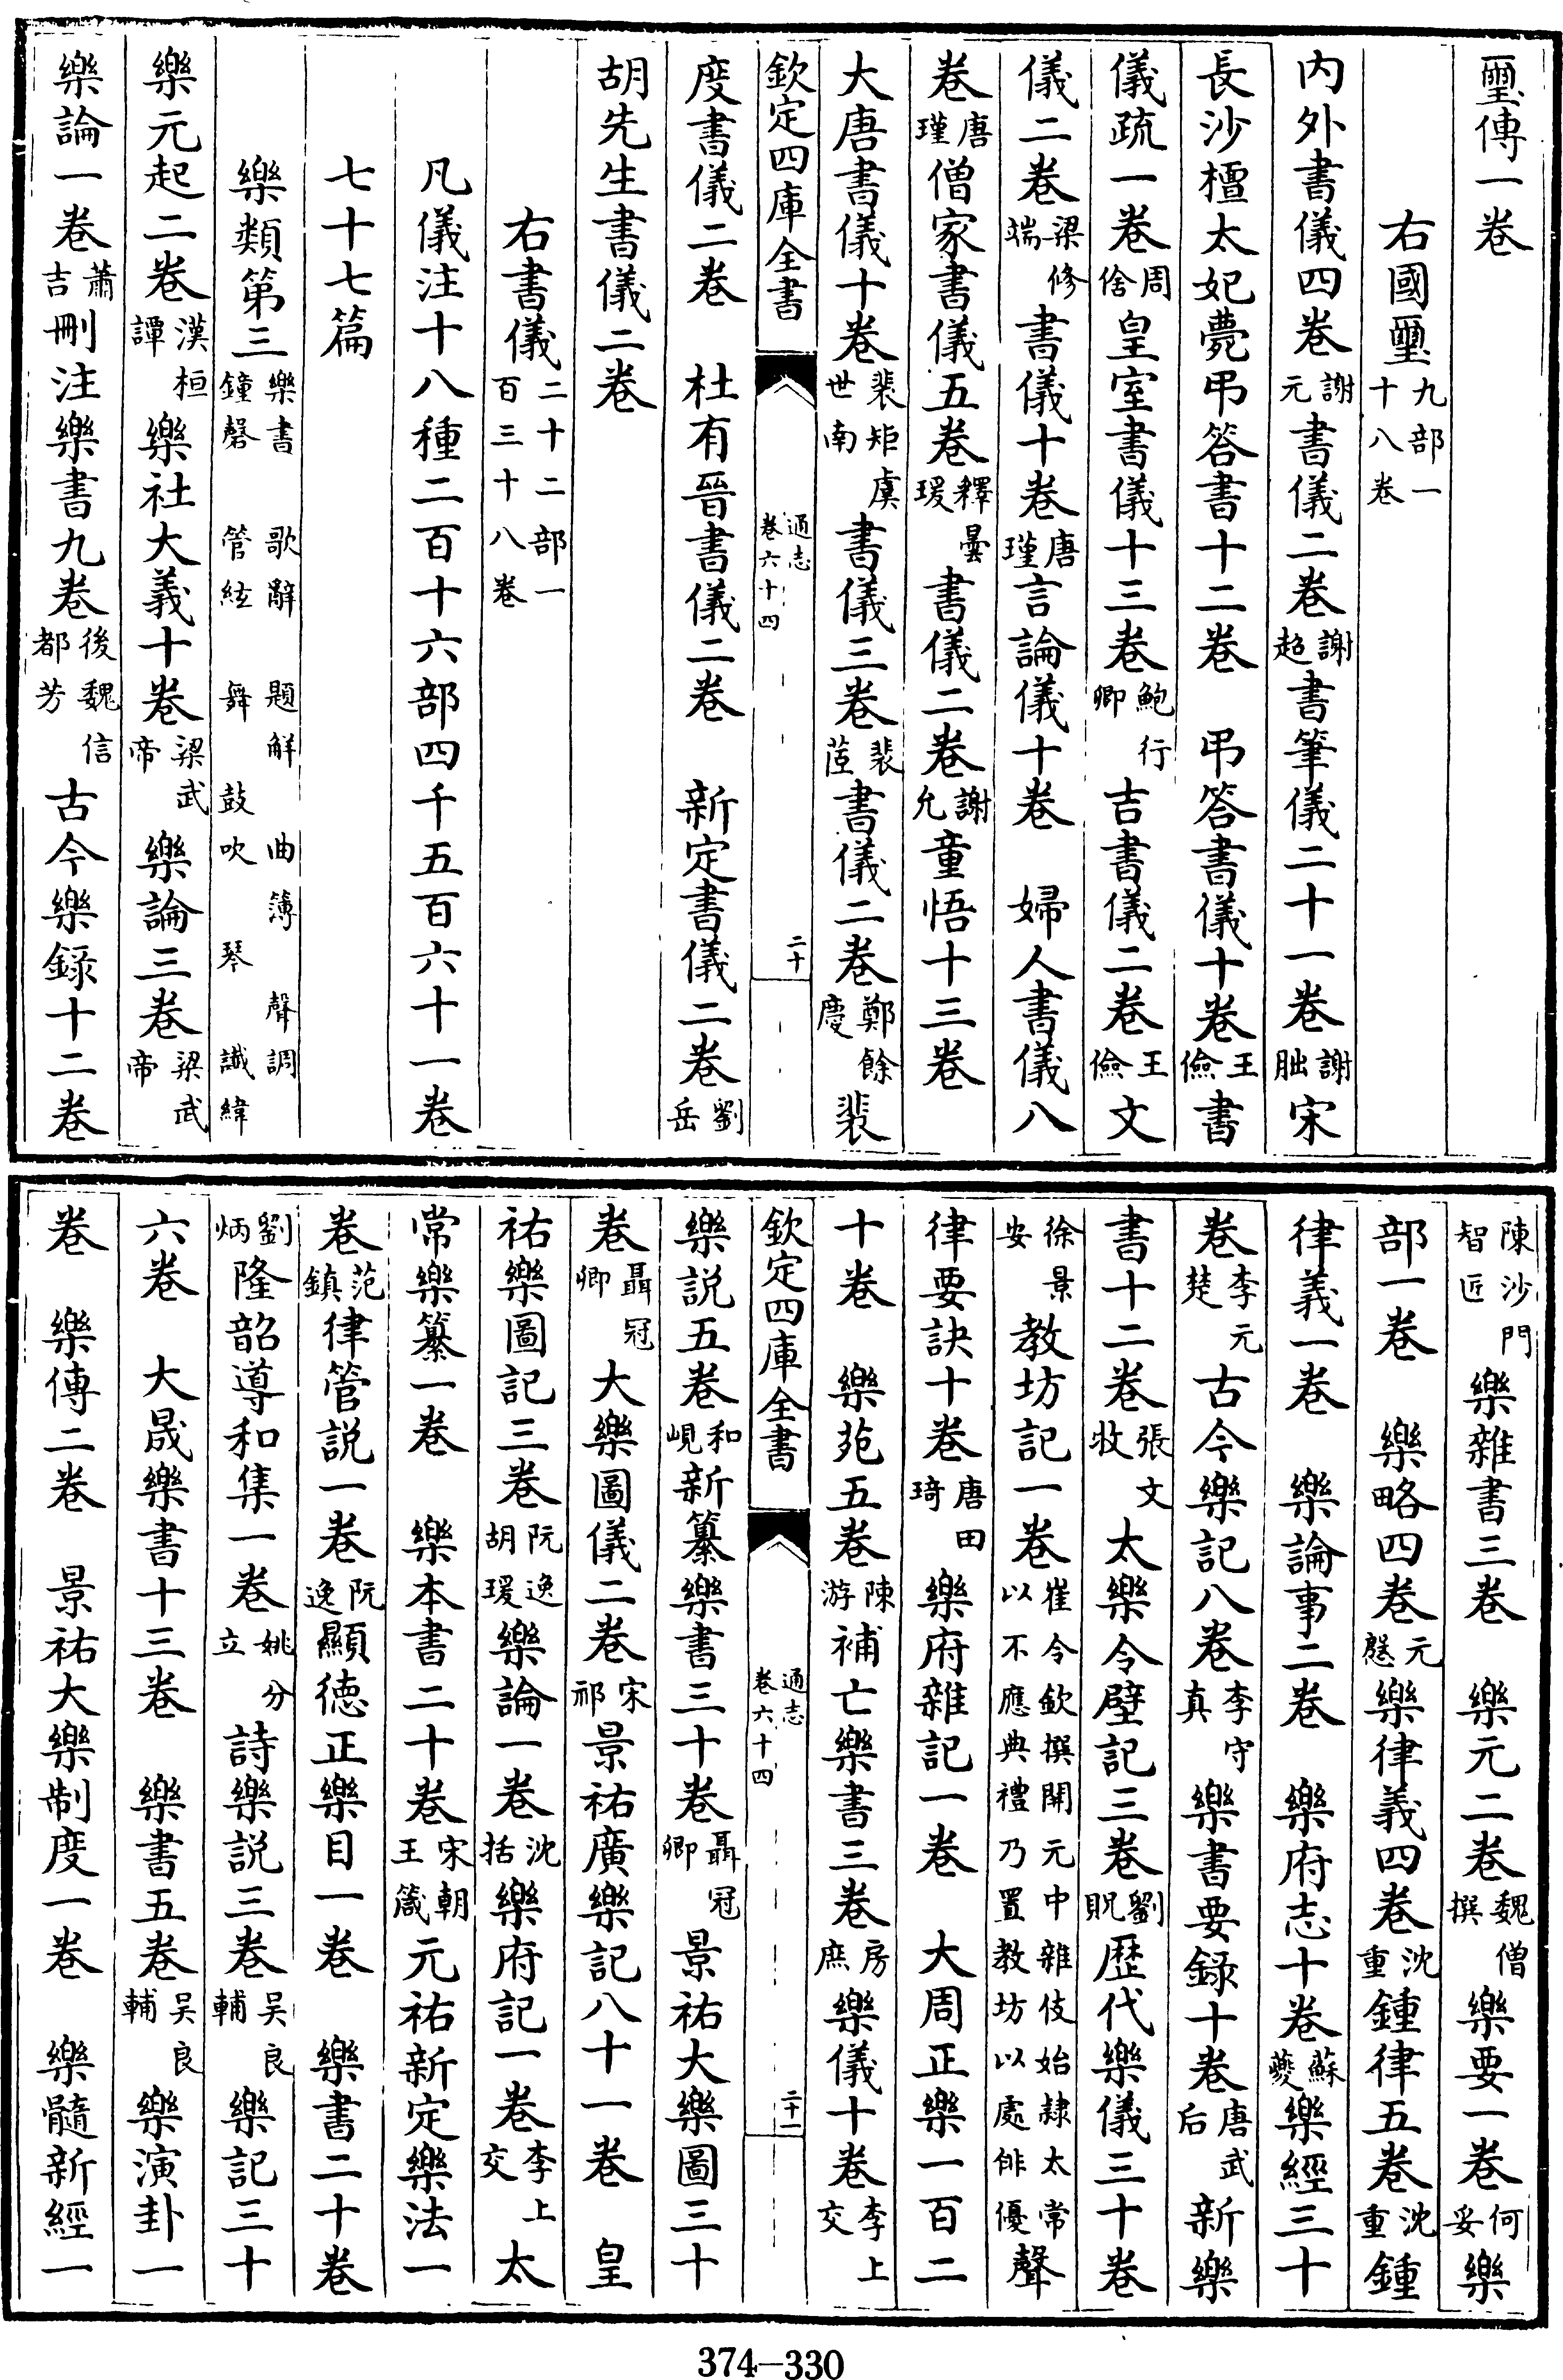 璽傳一卷
右國璽九部一十八卷
内外書儀四卷謝元書儀二卷謝超書筆儀二十一卷謝朏宋
長沙檀太妃薨弔答書十二卷　弔答書儀十卷王儉書
儀疏一卷周舍皇室書儀十三卷鮑行卿吉書儀二卷王儉文
儀二卷梁修端書儀十卷唐瑾言論儀十卷　婦人書儀八
卷唐瑾僧家書儀五卷釋曇瑗書儀二卷謝允童悟十三卷
大唐書儀十卷裴矩虞世南書儀三卷裴茝書儀二卷鄭餘慶裴
欽定四庫全書　通志卷六十四　二十
度書儀二卷　杜有晉書儀二卷　新定書儀二卷劉岳
胡先生書儀二卷
右書儀二十二部一百三十八卷
凡儀注十八種二百十六部四千五百六十一卷
七十七篇
樂類第三樂書　歌辭　題解　曲簿　聲調　鐘磬　管絃　舞　鼓吹　琴　讖緯
樂元起二卷漢桓譚樂社大義十卷梁武帝樂論三卷梁武帝
樂論一卷蕭吉刪注樂書九卷後魏信都芳古今樂録十二卷
陳沙門智匠樂雜書三卷　樂元二卷魏僧撰樂要一卷何妥樂
部一卷　樂略四卷元慇樂律義四卷沈重鍾律五卷沈重鍾
律義一卷　樂論事二卷　樂府志十卷蘇夔樂經三十
卷李元楚古今樂記八卷李守真樂書要録十卷唐武后新樂
書十二卷張文收太樂令壁記三卷劉貺歴代樂儀三十卷
徐景安教坊記一卷崔令欽撰開元中雜伎始隸太常以不應典禮乃置教坊以處俳優聲
律要訣十卷唐田琦樂府雜記一卷　大周正樂一百二
十卷　樂苑五卷陳游補亡樂書三卷房庶樂儀十卷李上交
欽定四庫全書　通志卷六十四　二十一
樂説五卷和峴新纂樂書三十卷聶冠卿景祐大樂圖三十
卷聶冠卿大樂圖儀二卷宋祁景祐廣樂記八十一卷　皇
祐樂圖記三卷阮逸胡瑗樂論一卷沈括樂府記一卷李上交太
常樂纂一卷　樂本書二十卷宋朝王箴元祐新定樂法一
卷范鎮律管説一卷阮逸顯德正樂目一卷　樂書二十卷
劉炳隆韶導和集一卷姚分立詩樂説三卷吴良輔樂記三十
六卷　大晟樂書十三卷　樂書五卷吴良輔樂演卦一
卷　樂傳二卷　景祐大樂制度一卷　樂髓新經一
374-330